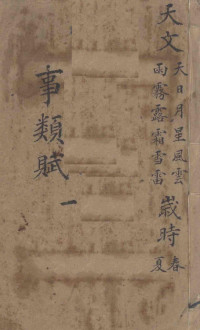 天文
天日月星風雲
雨霧露霜雪雷
歲時
春
夏
事類賦
一